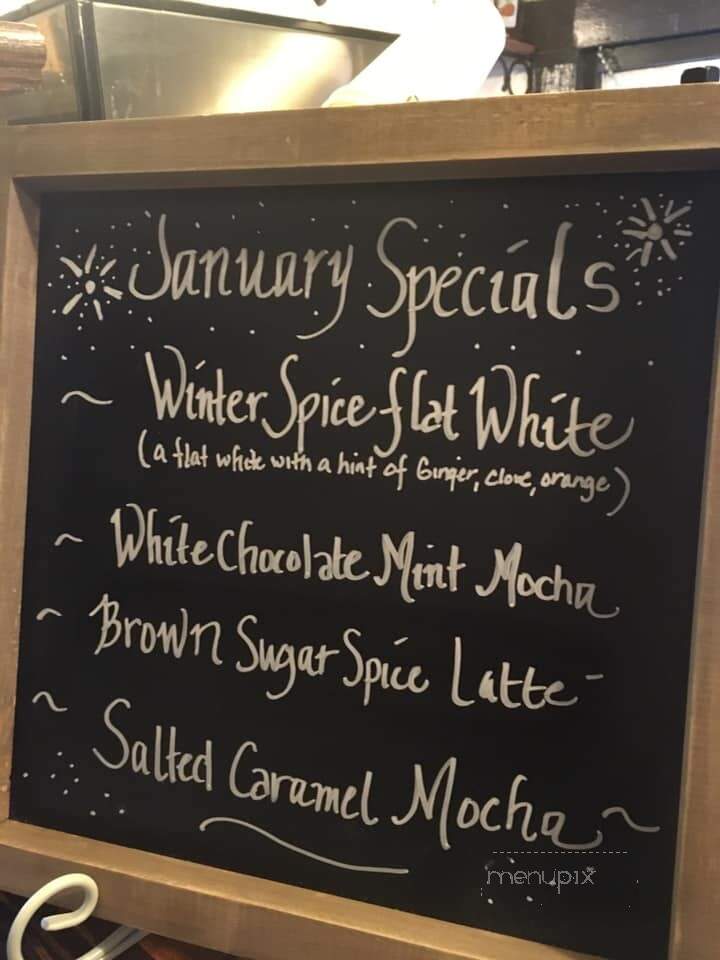 January Specials
~ Winter Spice flat White
(a flat white with a hint of Ginger, clove, orange)
~ White Chocolate Mint Mocha
~ Brown Sugar Spice Latte -
~ Salted Caramel Mocha ~
menupix